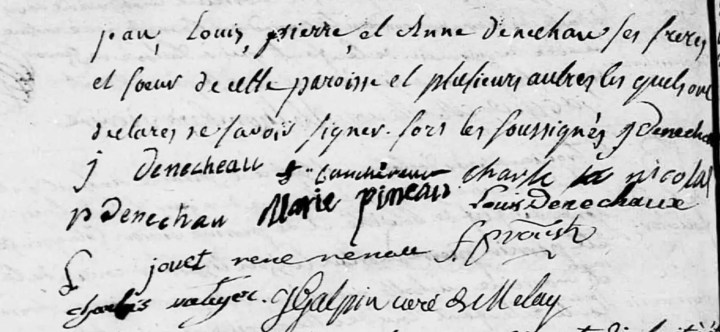 jean, Louis, pierre, et Anne denechau ses freres
et soeur de cette paroisse et plusieurs autres les quels ont
declarés ne savoir signer. fors les soussignés j denecheau
j denecheau charle nicolas
p denechau Marie pineau Louis Denechaux
jouet rene renau
charles galpin curé de Melay